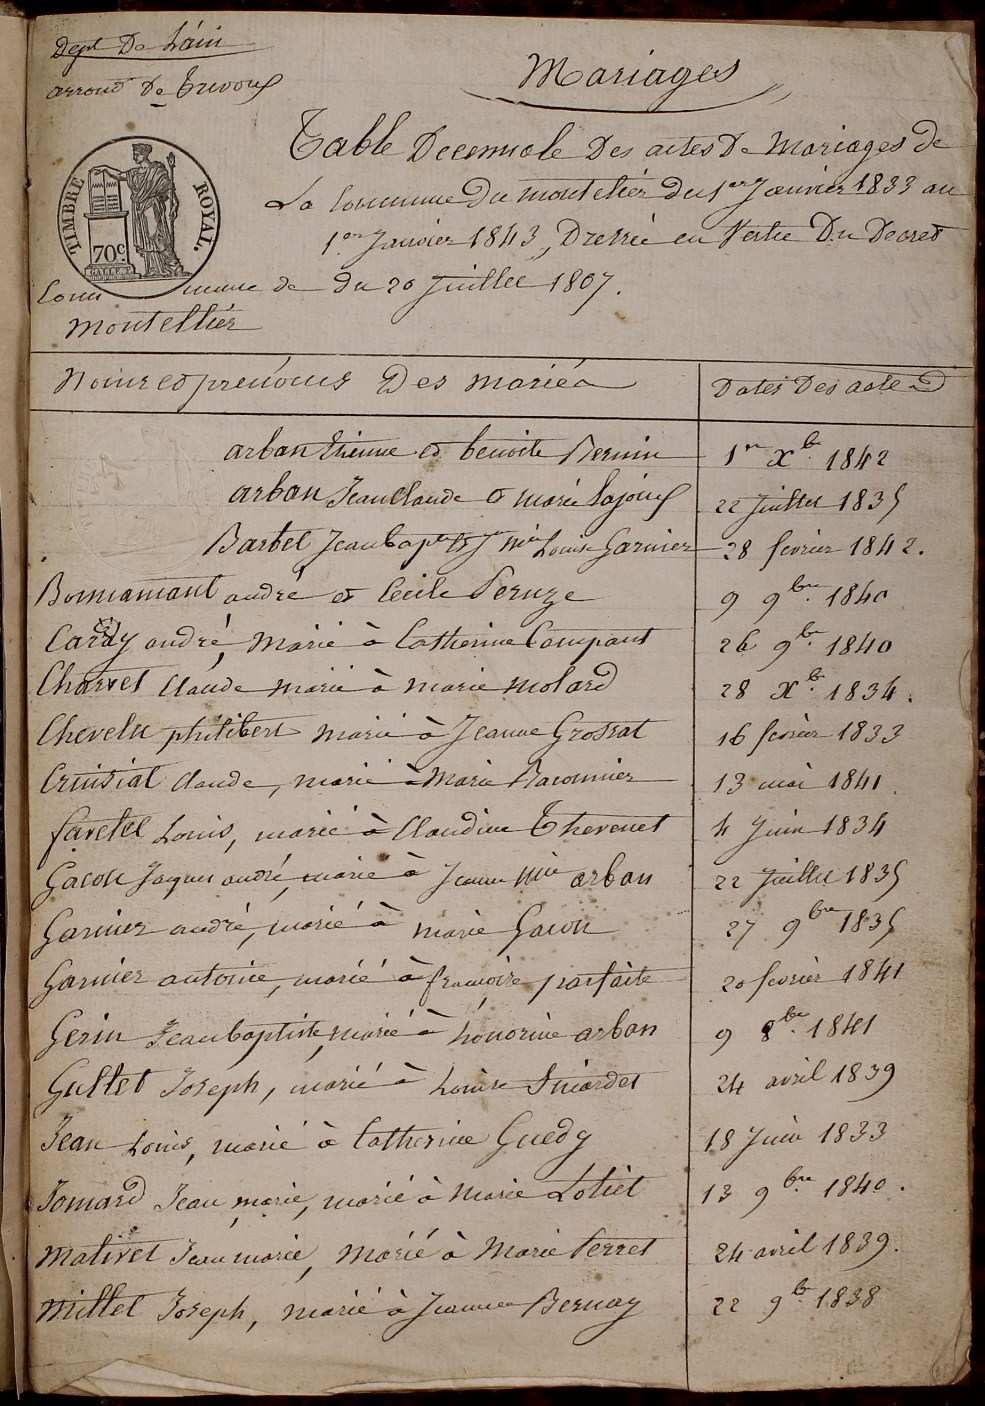 Dept De Lain
arrond De Trevoux
Mariages
TIMBRE ROYAL.
70c
Table Decennale Des actes De Mariages de
La Commune Du montelier du 1er Janvier 1833 au
1er Janvier 1843, Dressée en Vertu Du Decret
Commune de du 20 Juillet 1807.
montellier
Noms et prénoms Des mariés Dates Des actes
arban Etienne et benoite Bernin 1er Xbre 1842
arban Jean Claude et marie lajoux 22 Juillet 1835
Barbet Jean Bapte et Jne mie Louise Garnier 28 fevrier 1842.
Bonnamant andré et Cecile Peruze 9 9bre 1840
Carry andré, marié à Catherine Compant 26 9bre 1840
Charvet Claude marié à marie molard 28 Xbre 1834.
Chevelu philibert marié à Jeanne Grossat 16 fevrier 1833
Cruisiat Claude, marié à Marie Baconnier 13 mai 1841
favelle Louis, marié à Claudine Thevenet 4 Juin 1834
Gacon Jaques andré, marié à Jeanne mie arban 22 Juillet 1835
Garnier andré, marié à marie Gacon 27 9bre 1835
Garnier antoine, marié à françoise parfaite 20 fevrier 1841
Gerin Jean baptiste, marié à honorine arban 9 8bre 1841
Guttet Joseph, marié à Louise 24 avril 1839
Jean Louis, marié à Catherine Guedy 18 Juin 1833
Jomard Jean marie, marié à Marie Loliet 13 9bre 1840.
mativet Jean marie, marié à Marie Perret 24 avril 1839.
Millet Joseph, marié à Jeanne Bernay 22 9bre 1838